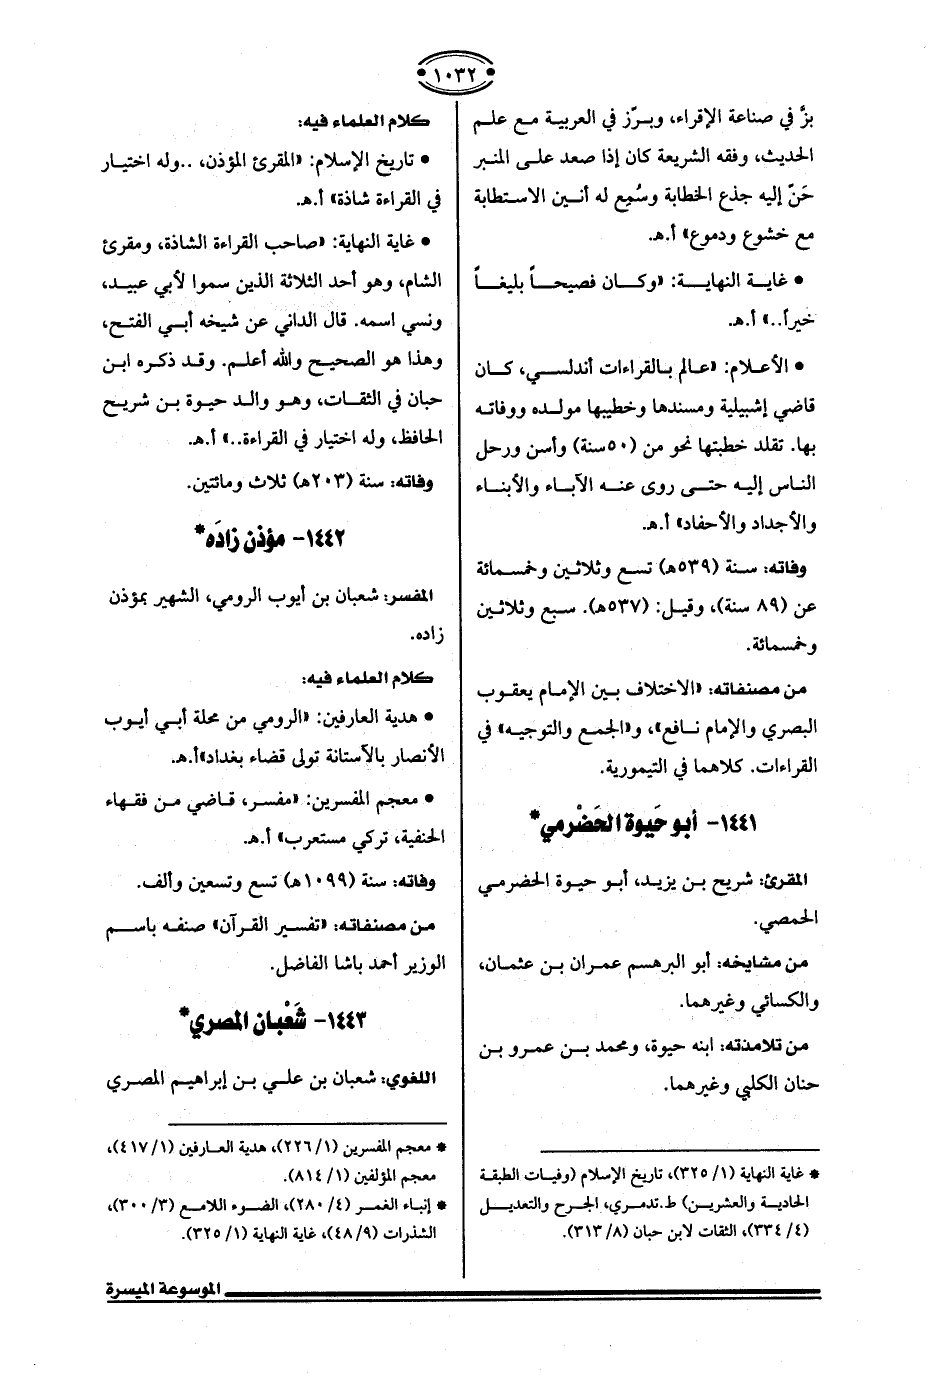 ١٠٣٢
بزَّ في صناعة الإقراء، وبرّز في العربية مع علم
الحديث، وفقه الشريعة كان إذا صعد على المنبر
حَنّ إليه جذع الخطابة وسُمِع له أنين الاستطابة
مع خشوع ودموع» أ.هـ.
• غاية النهاية: «وكان فصيحاً بليغاً
خيراً..» أ.هـ.
• الأعلام: «عالم بالقراءات أندلسي، كان
قاضي إشبيلية ومسندها وخطيبها مولده ووفاته
بها. تقلد خطبتها نحو من (٥٠سنة) وأسن ورحل
الناس إليه حتى روى عنه الآباء والأبناء
والأجداد والأحفاد» أ.هـ.
وفاته: سنة (٥٣٩هـ) تسع وثلاثين وخمسمائة
عن (٨٩ سنة)، وقيل: (٥٣٧هـ). سبع وثلاثين
وخمسمائة.
من مصنفاته: «الاختلاف بين الإمام يعقوب
البصري والإمام نافع»، و«الجمع والتوجيه» في
القراءات. كلاهما في التيمورية.
١٤٤١- أبو حَيوة الحَضْرمي*
المقرئ: شريح بن يزيد، أبو حيوة الحضرمي
الحمصي.
من مشايخه: أبو البرهسم عمران بن عثمان،
والكسائي وغيرهما.
من تلامذته: ابنه حيوة، ومحمد بن عمرو بن
حنان الكلبي وغيرهما.
* غاية النهاية (١/ ٣٢٥)، تاريخ الإسلام (وفيات الطبقة
الحادية والعشرين) ط.تدمري، الجرح والتعديل
(٤/ ٣٣٤)، الثقات لابن حبان (٨/ ٣١٣).
كلام العلماء فيه:
• تاريخ الإسلام: «المقرئ المؤذن، ..وله اختيار
في القراءة شاذة» أ.هـ.
• غاية النهاية: «صاحب القراءة الشاذة، ومقرئ
الشام، وهو أحد الثلاثة الذين سموا لأبي عبيد،
ونسي اسمه. قال الداني عن شيخه أبي الفتح،
وهذا هو الصحيح والله أعلم. وقد ذكره ابن
حبان في الثقات، وهو والد حيوة بن شريح
الحافظ، وله اختيار في القراءة..» أ.هـ.
وفاته: سنة (٢٠٣هـ) ثلاث ومائتين.
١٤٤٢- مؤذن زادَه*
المفسر: شعبان بن أيوب الرومي، الشهير بمؤذن
زاده.
كلام العلماء فيه:
• هدية العارفين: «الرومي من محلة أبي أيوب
الأنصار بالآستانة تولى قضاء بغداد»أ.هـ.
• معجم المفسرين: «مفسر، قاضي من فقهاء
الحنفية، تركي مستعرب» أ.هـ.
وفاته: سنة (١٠٩٩هـ) تسع وتسعين وألف.
من مصنفاته: «تفسير القرآن» صنفه باسم
الوزير أحمد باشا الفاضل.
١٤٤٣- شَعْبان المصري*
اللغوي: شعبان بن علي بن إبراهيم المصري
* معجم المفسرين (١/ ٢٢٦)، هدية العارفين (١/ ٤١٧)،
معجم المؤلفين (١/ ٨١٤).
* إنباء الغمر (٤/ ٢٨٠)، الضوء اللامع (٣/ ٣٠٠)،
الشذرات (٩/ ٤٨)، غاية النهاية (١/ ٣٢٥).
الموسوعة الميسرة